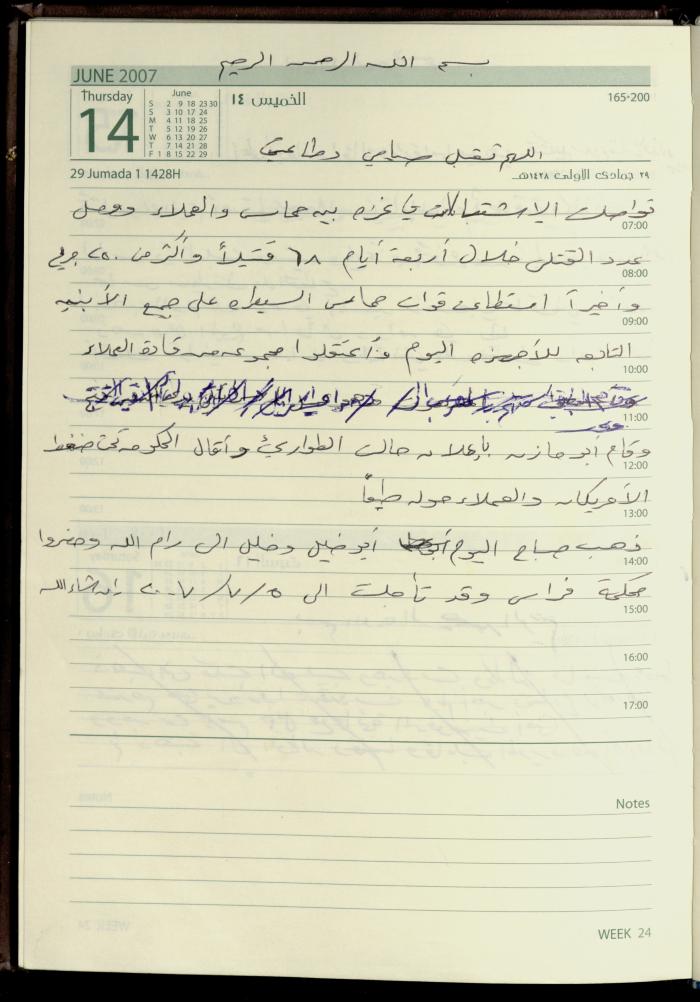 بسم الله الرحمن الرحيم
JUNE 2007
Thursday
14
June
S 2 9 18 23 30
S 3 10 17 24
M 4 11 18 25
T 5 12 19 26
W 6 13 20 27
T 7 14 21 28
F 1 8 15 22 29
الخميس ١٤
165-200
اللهم تقبل صيامي وطاعتي
29 Jumada 1 1428H
٢٩ جمادى الأولى ١٤٢٨هـ
تواصلت الاشتباكات في غزه بين حماس والعملاء ووصل
07:00
عدد القتلى خلال أربعة أيام ٦٨ قتيلاً وأكثر من ٢٥٠ جريح
08:00
وأخيراً استطاعت قوات حماس السيطره على جميع الأبنيه
09:00
التابعه للأجهزه اليوم وأعتقلوا مجموعه من قادة العملاء
10:00
11:00
وقام أبو مازن بإعلان حالت الطوارئ وأقال الحكومه تحت ضغط
12:00
الأمريكان والعملاء حوله طبعاً
13:00
ذهب صباح اليوم أبو خليل وخليل الى رام الله وحضروا
14:00
محكمة فراس وقد تأجلت الى ٢٠٠٧/٧/٥ إن شاء الله
15:00
16:00
17:00
Notes
WEEK 24